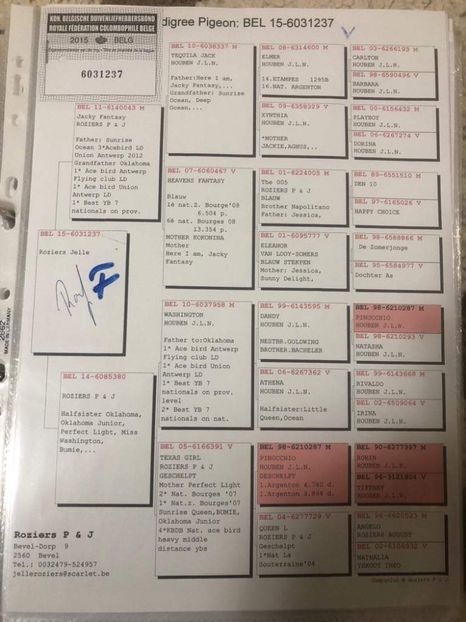 KON. BELGISCHE DUIVENLIEFHEBBERSBOND
ROYALE FÉDÉRATION COLOMBOPHILE BELGE
2015 BELG
6031237
digree Pigeon: BEL 15-6031237
BEL 15-6031237
Roziers Jelle
F
BEL 11-6140043 M
Jacky Fantasy
ROZIERS P & J
Father: Sunrise
Ocean 3*Acebird LD
Union Antwerp 2012
Grandfather Oklahoma
1* Ace bird Antwerp
Flying club LD
1* Ace bird Union
Antwerp LD
1* Best YB 7
nationals on prov.
BEL 14-6085380
ROZIERS P & J
Halfsister Oklahoma,
Oklahoma Junior,
Perfect Light, Miss
Washington,
Bumie,...
BEL 10-6038337 M
TEQUILA JACK
HOUBEN J.L.N.
Father:Here I am,
Jacky Fantasy,...
Grandfather: Sunrise
Ocean, Deep
Ocean,...
BEL 07-6060467 V
HEAVENS FANTASY
Blauw
1é nat.Z. Bourge'08
6.504 p.
6é nat. Bourges'08
13.354 p.
MOTHER KOKONINA
Mother
Here I am, Jacky
Fantasy
BEL 10-6037958 M
WASHINGTON
HOUBEN J.L.N.
Father to:Oklahoma
1* Ace bird Antwerp
Flying club LD
1* Ace bird Union
Antwerp LD
1* Best YB 7
nationals on prov.
level
2* Best YB 7
nationals on nat.
BEL 05-6166391 V
TEXAS GIRL
ROZIERS P & J
GESCHELPT
Mother Perfect Light
2* Nat. Bourges '07
1* Nat.z. Bourges '07
Sunrise Queen,BUMIE,
Oklahoma Junior
4*KBDB Nat. ace bird
heavy middle
distance ybs
BEL 08-6314600 M
ELMER
HOUBEN J.L.N.
14.ETAMPES 1295D
16.NAT. ARGENTON
BEL 09-6358329 V
XYNTHIA
HOUBEN J.L.N.
*MOTHER
JACKIE,AGNUS,..
BEL 01-6224005 M
The 005
ROZIERS P & J
BLAUW
Brother Napolitano
Father: Jessica,
BEL 01-6095777 V
ELEANOR
VAN LOOY-SOMERS
BLAUW STEKPEN
Mother: Jessica,
Sunny Delight,
BEL 99-6143595 M
DANDY
HOUBEN J.L.N.
NESTBR.GOLDWING
BROTHER.BACHELER
BEL 06-6267362 V
ATHENA
HOUBEN J.L.N.
Halfsister:Little
Queen,Ocean
BEL 98-6210287 M
PINOCCHIO
HOUBEN J.L.N.
GESCHELPT
BEL 04-6277729 V
QUEEN L
ROZIERS P & J
Geschelpt
1*Nat La
Souterraine'04
BEL 03-6266193 M
CARLTON
HOUBEN J.L.N.
BEL 98-6590496 V
BARBARA
HOUBEN J.L.N.
BEL 00-6156432 M
PLAYBOY
HOUBEN J.L.N.
BEL 06-6267274 V
DORINA
HOUBEN J.L.N.
BEL 89-6551510 M
DEN 10
BEL 97-6165026 V
HAPPY CHOICE
BEL 98-6588866 M
De Zomerjonge
BEL 95-6584977 V
Dochter As
BEL 98-6210287 M
PINOCCHIO
HOUBEN J.L.N.
BEL 98-6210293 V
NATASHA
HOUBEN J.L.N.
BEL 99-6143668 M
RIVALDO
HOUBEN J.L.N.
BEL 02-6509064 V
IRINA
HOUBEN J.L.N.
BEL 90-6277397 M
ROBIN
HOUBEN J.L.N.
BEL 96-3121904 V
TIFFANY
HOUBEN J.L.N.
ANGELO
ROZIERS AUGUST
NATHALIA
Roziers P & J
Bevel-Dorp 9
2560 Bevel
Tel.: 0032479-524957
jelleroziers@scarlet.be
MADE IN GERMANY